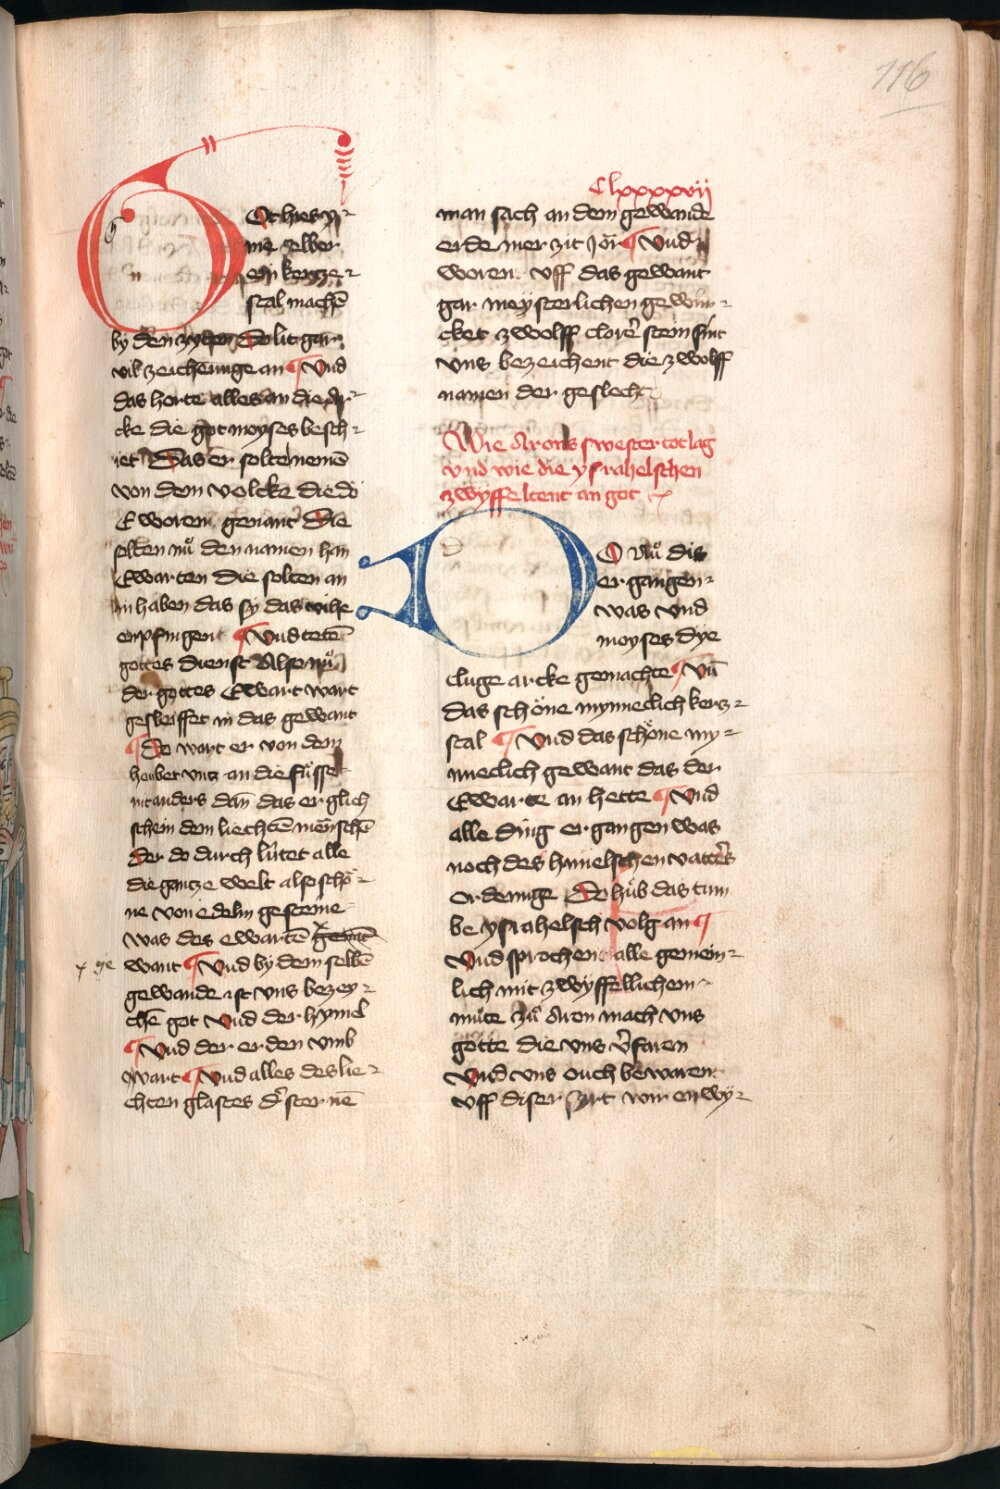 116
Clxxxxvij
Got hies ym
ime selber
ein kerzze
stal machē
by den zyten Do lit gar
vil zeichenunge an ¶ Vnd
das horte alles an die ar
cke die got moyses besch
iet Das er solte nemē
von dem volcke die do
E woren genant Die
solten nuͦ den namen han
Ewarten die solten an
in haben das sy das wihe
enpfingent ¶ Vnd tetē
gottes dienst Also nuͦ
der gottes Ewart wart
gesleiffet in das gewant
¶ Do wart er von dem
houbet vntz an die fuͤsse
nit anders dan̄ das er glich
schein dem liechtē menschē
der do durch luͤtet alle
die gantze welt also schoͤ
ne von edelm gesteine
was des ewartē
+ ge want ¶ Vnd by dem selbē
gewande ist vns bezey
chē got Vnd der hymel
¶ Vnd der erden vmb
wart ¶ Vnd alles des lie
chten glastes dˢ sternē
man sach an dem gewande
erde mer zit Jor ¶ Vnd
woren Vff das gewant
gar meysterlichen gewuͤr
cket zwolff clorē stein sint
vns bezeichent die zwolff
namen der geslecht
Wie Arons swester tot lag
vnd wie die ysrahelschen
zwyffeltent an got
DO nuͦ dis
ergangen
was vnd
moyses dye
cluge arcke gemachte ¶ Vn̄
das schoͤne mynneclich kerz
stal ¶ Vnd das schoͤne my
nneclich gewant das der
Ewarte an hette ¶ Vnd
alle ding ergangen was
noch des himelschen vatters
ordenūge Do huͦb das tum
be ysrahelsch volg an ¶
Vnd sprochent alle gemein
lich mit zwyffellichem
muͦte zuͦ Aron mach vns
gotte die vns vˢfaren
Vnd vns ouch bewaren
Vff diser vart wir en wy